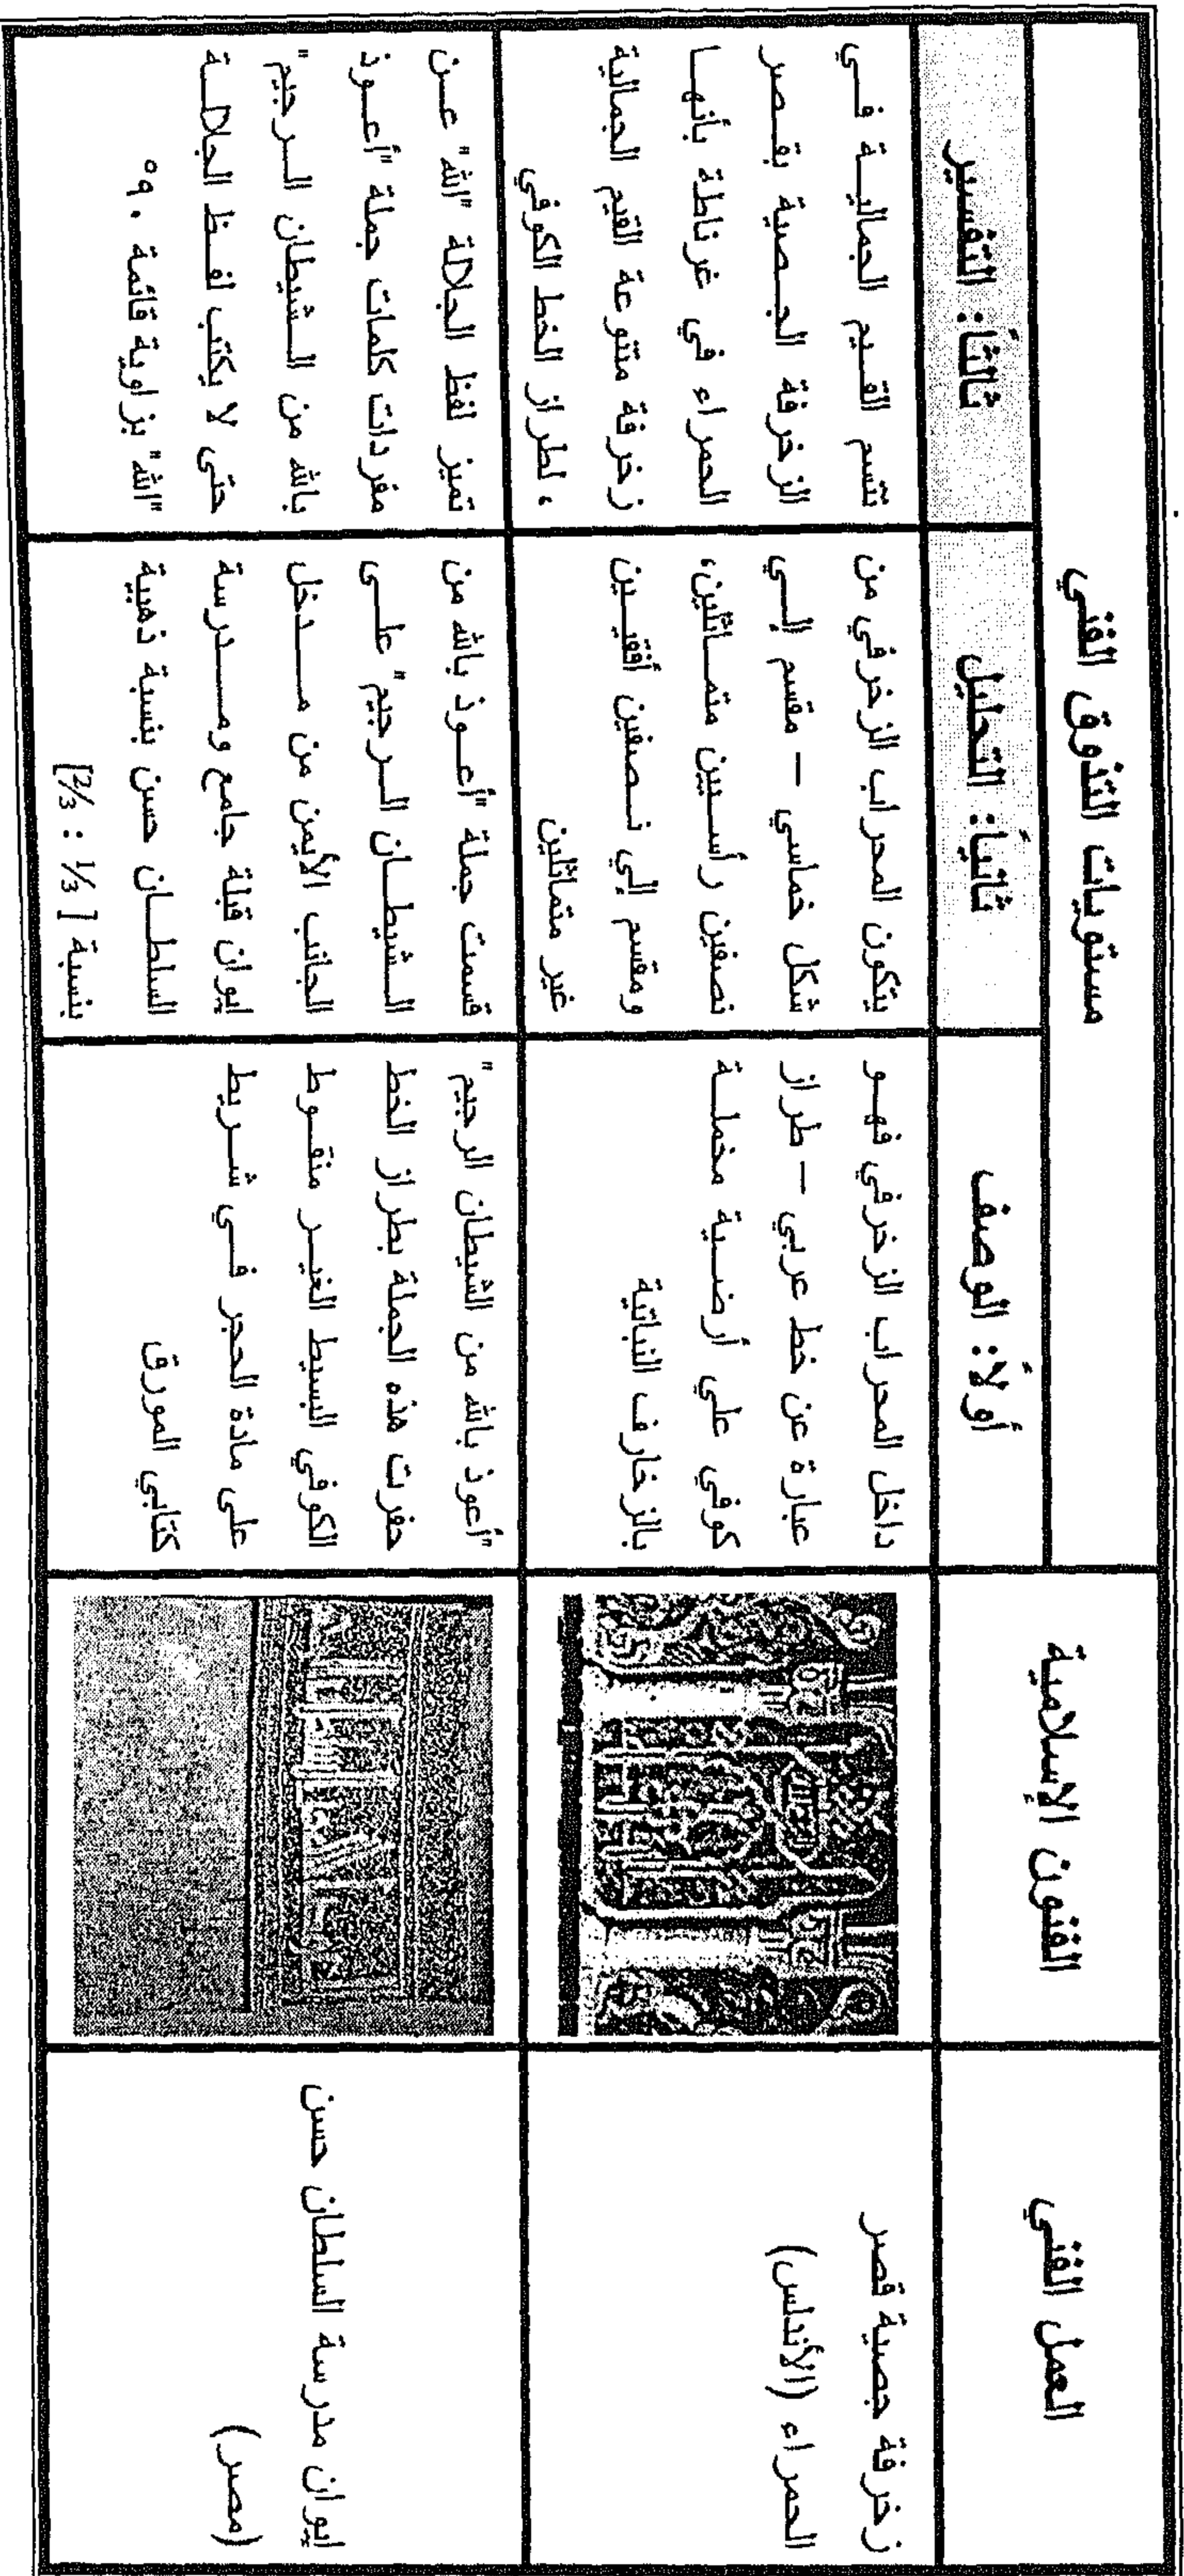 العمل الفني
الفنون الإسلامية
مستويات التذوق الفني
أولاً: الوصف
ثانياً: التحليل
ثالثاً: التفسير
زخرفة جصية قصر
الحمراء (الأندلس)
داخل المحراب الزخرفي فهو
عبارة عن خط عربي – طراز
كوفي علي أرضية مخملة
بالزخارف النباتية
يتكون المحراب الزخرفي من
شكل خماسي – مقسم إلي
نصفين رأسيين متماثلين،
ومقسم إلي نصفين أفقيين
غير متماثلين
تتسم القيم الجمالية في
الزخرفة الجصية بقصر
الحمراء في غرناطة بأنها
زخرفة متنوعة القيم الجمالية
، لطراز الخط الكوفي
ايوان مدرسة السلطان حسن
(مصر)
"أعوذ بالله من الشيطان الرجيم"
حفرت هذه الجملة بطراز الخط
الكوفي البسيط الغير منقوط
على مادة الحجر في شريط
كتابي المورق
قسمت جملة "أعوذ بالله من
الشيطان الرجيم" على
الجانب الأيمن من مدخل
ايوان قبلة جامع ومدرسة
السلطان حسن بنسبة ذهبية
بنسبة [ ⅓ : ⅔]
تميز لفظ الجلالة "الله" عن
مفردات كلمات جملة "أعوذ
بالله من الشيطان الرجيم"
حتى لا يكتب لفظ الجلالة
"الله" بزاوية قائمة ٩٠°